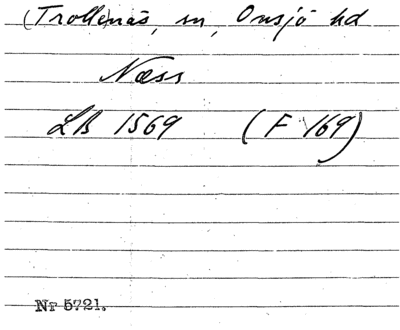 (Trollenäs, sn, Onsjö hd
Næss
LB 1569 (F 169)
Nr 5721.